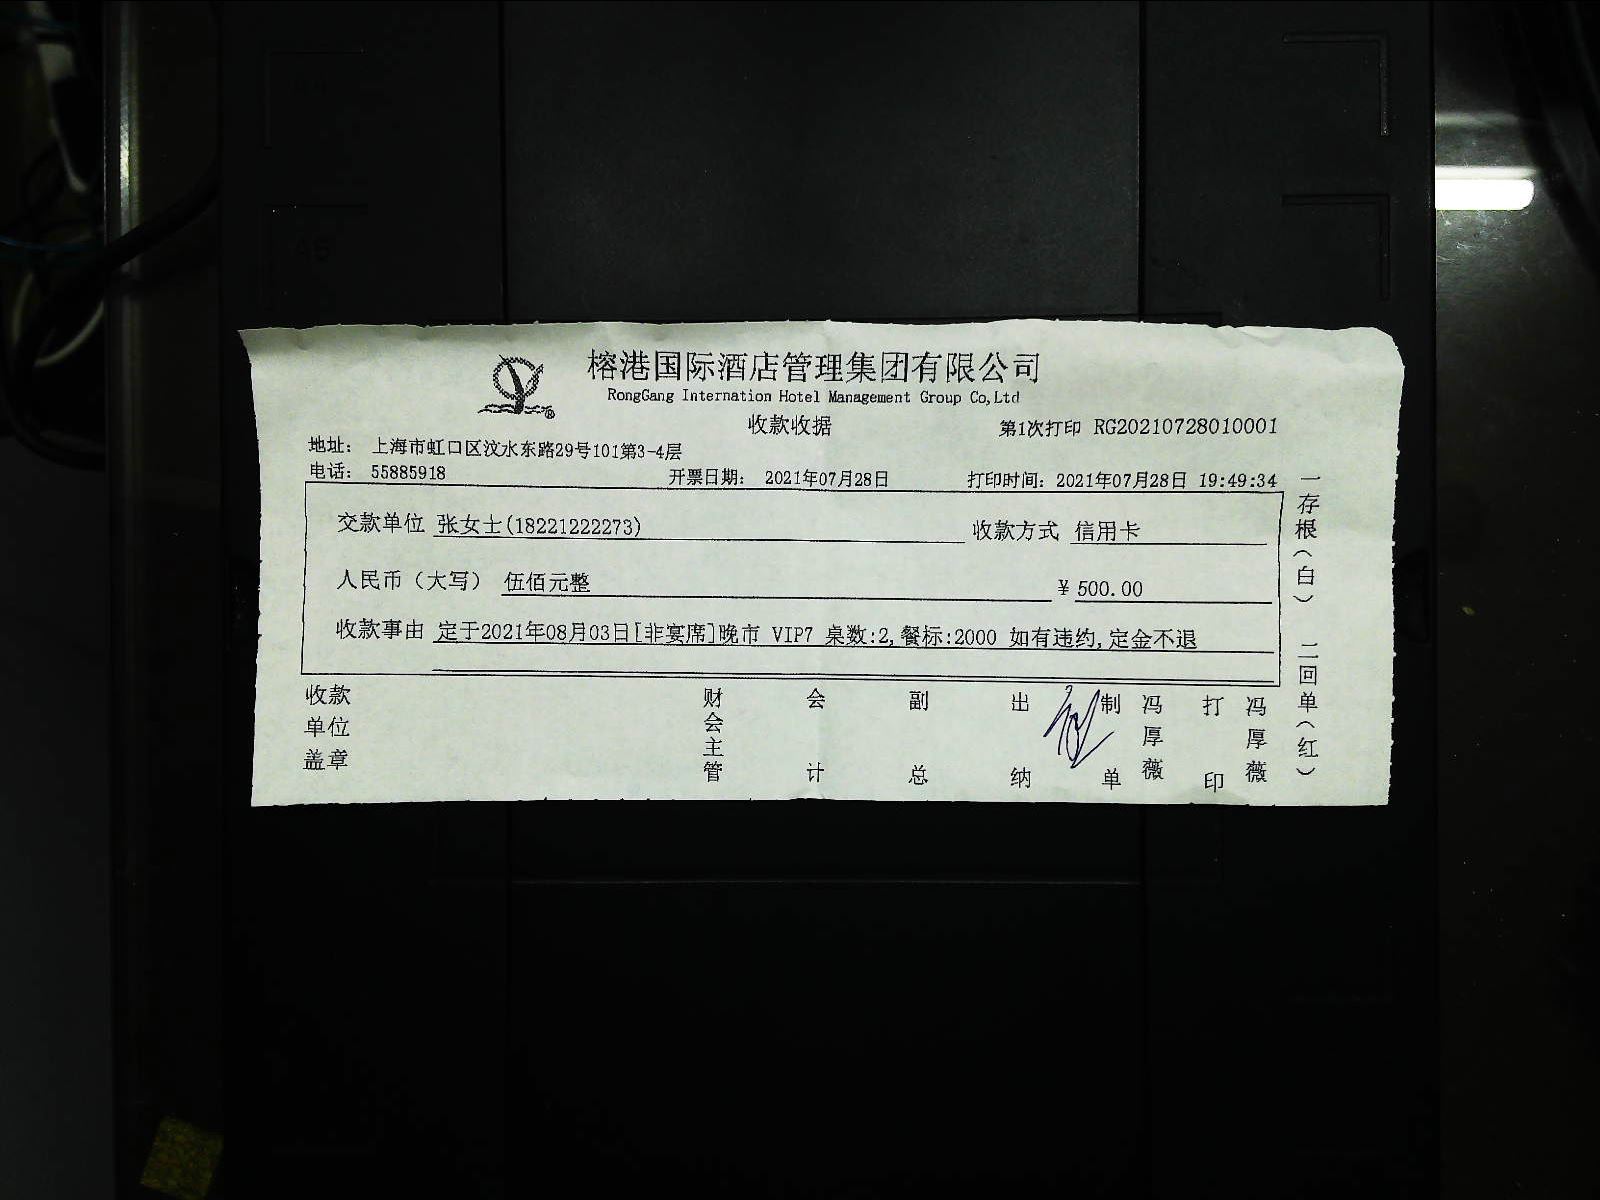 榕港国际酒店管理集团有限公司
RongGang Internation Hotel Management Group Co,Ltd
收款收据
第1次打印 RG20210728010001
地址： 上海市虹口区汶水东路29号101第3-4层
电话： 55885918 开票日期： 2021年07月28日 打印时间：2021年07月28日 19:49:34
交款单位 张女士(18221222273) 收款方式 信用卡
人民币（大写） 伍佰元整 ¥ 500.00
收款事由 定于2021年08月03日[非宴席]晚市 VIP7 桌数:2,餐标:2000 如有违约,定金不退
收款单位盖章 财会主管 会计 副总 出纳 制单 冯厚薇 打印 冯厚薇
一存根（白） 二回单（红）